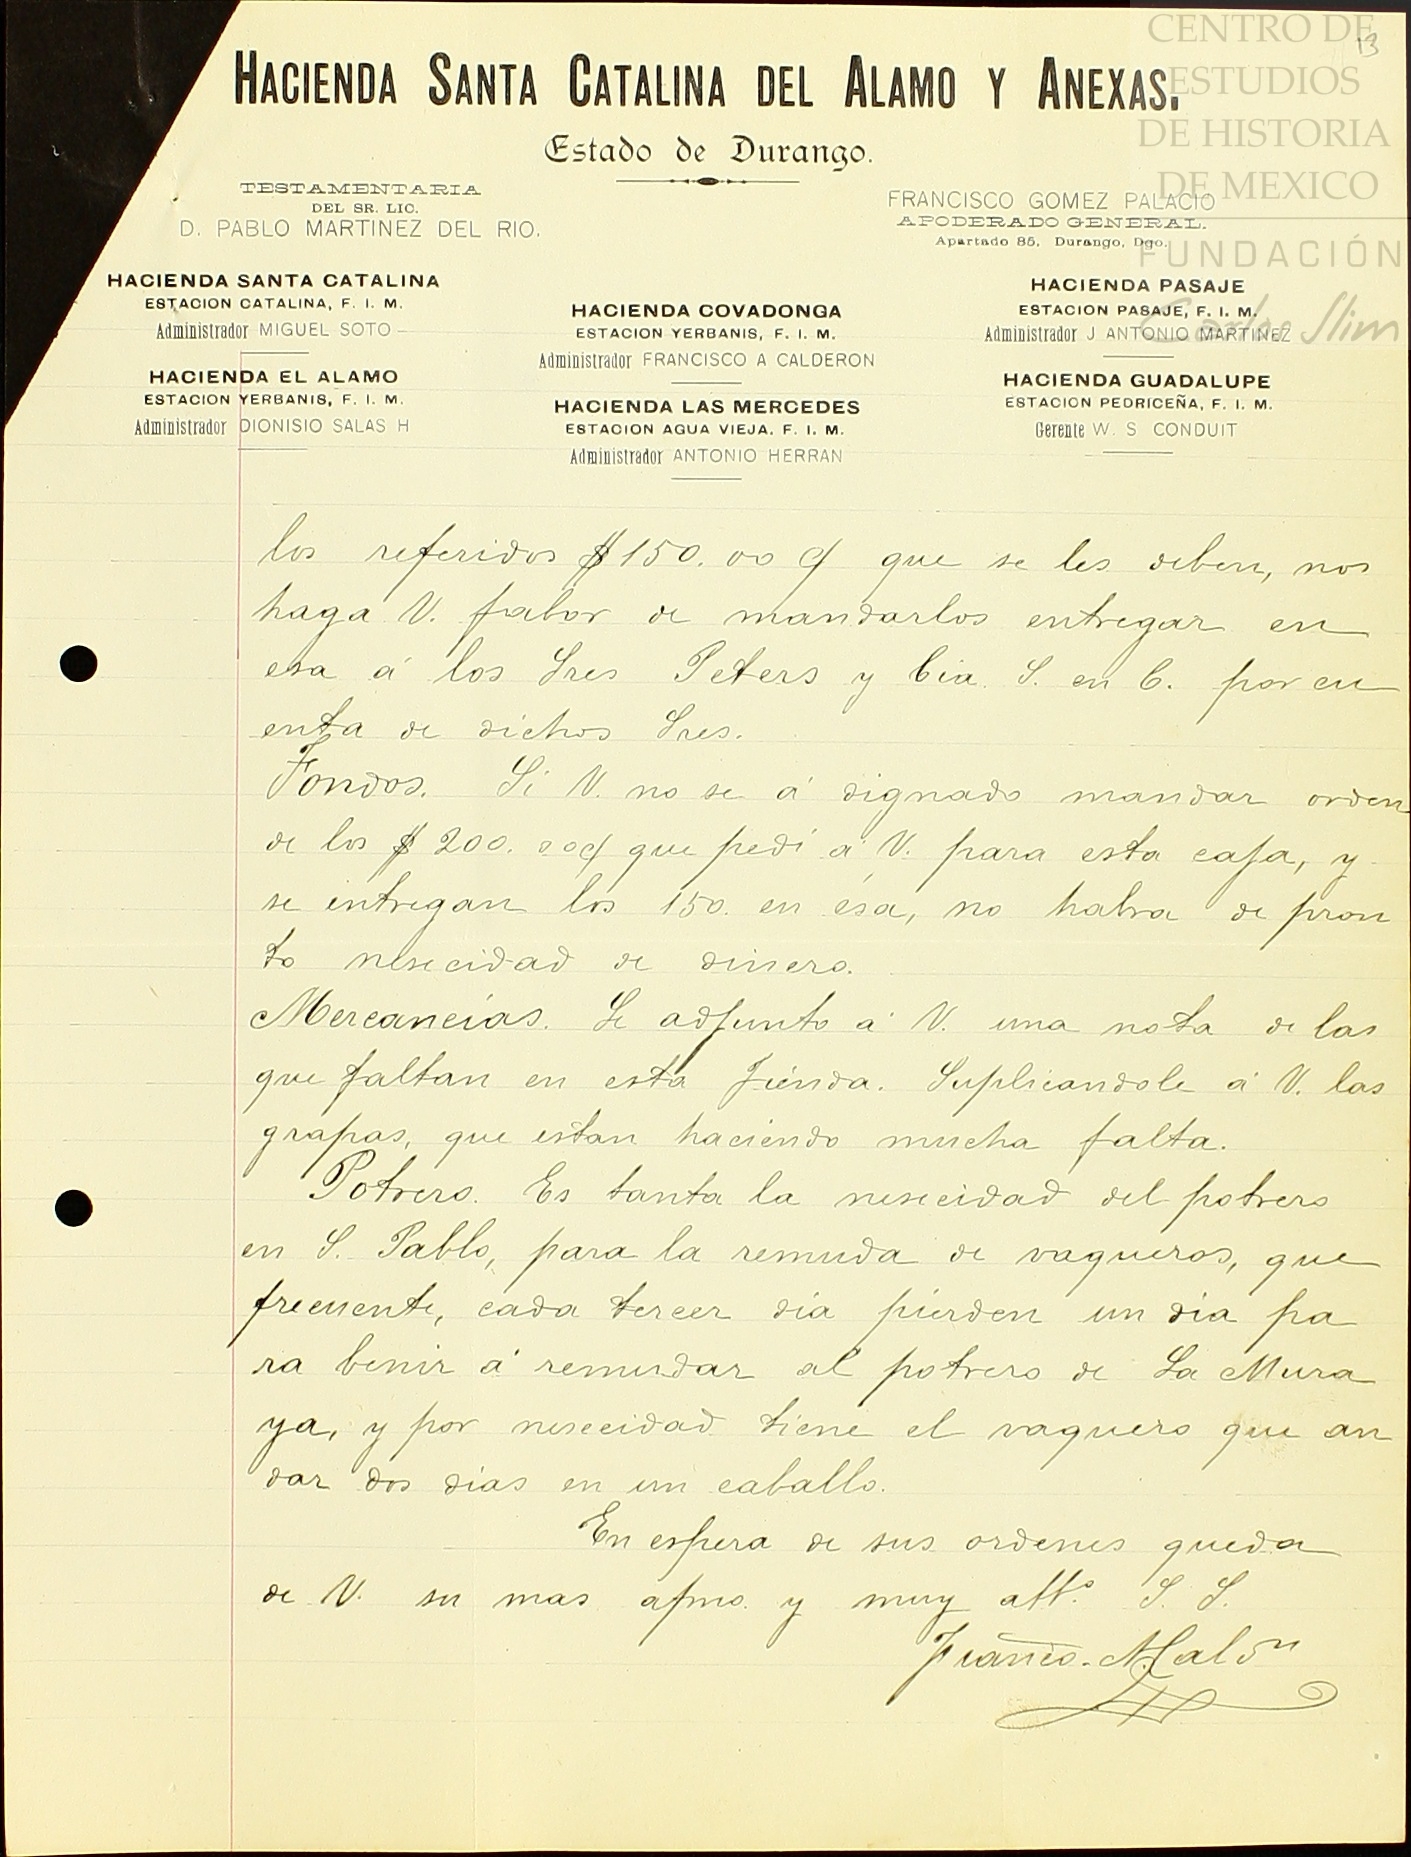 CENTRO DE
ESTUDIOS
DE HISTORIA
DE MEXICO
FUNDACIÓN
Carlos Slim
13
HACIENDA SANTA CATALINA DEL ALAMO Y ANEXAS.
Estado de Durango.
TESTAMENTARIA
DEL SR. LIC.
D. PABLO MARTINEZ DEL RIO.
FRANCISCO GOMEZ PALACIO
APODERADO GENERAL.
Apartado 85, Durango, Dgo.
HACIENDA SANTA CATALINA
ESTACION CATALINA, F. I. M.
Administrador MIGUEL SOTO
HACIENDA EL ALAMO
ESTACION YERBANIS, F. I. M.
Administrador DIONISIO SALAS H
HACIENDA COVADONGA
ESTACION YERBANIS, F. I. M.
Administrador FRANCISCO A CALDERON
HACIENDA LAS MERCEDES
ESTACION AGUA VIEJA. F. I. M.
Administrador ANTONIO HERRAN
HACIENDA PASAJE
ESTACION PASAJE, F. I. M.
Administrador J ANTONIO MARTINEZ
HACIENDA GUADALUPE
ESTACION PEDRICEÑA, F. I. M.
Gerente W. S CONDUIT
los referidos $150.00 ȼ que se les deben, nos
haga V. fabor de mandarlos entregar en
esa á los Sres Peters y Cia. S. en C. por cu
enta de dichos Sres.
Fondos. Si V. no se á dignado mandar orden
de los $200.00ȼ que pedi á V. para esta caja, y
se entregan los 150. en ésa, no habra de pron
to nesecidad de dinero.
Mercancías. Le adjunto á V. una nota de las
que faltan en esta Tienda. Suplicandole á V. las
grapas, que estan haciendo mucha falta.
Potrero. Es tanta la nesecidad del potrero
en S. Pablo, para la remuda de vaqueros, que
frecuente, cada tercer día pierden un dia pa
ra benir á remudar al potrero de La Mura
ya, y por nesecidad tiene el vaquero que an
dar dos dias en un caballo.
En espera de sus ordenes queda
de V. su mas afmo. y muy atto. S. S.
Franco. A. Calón